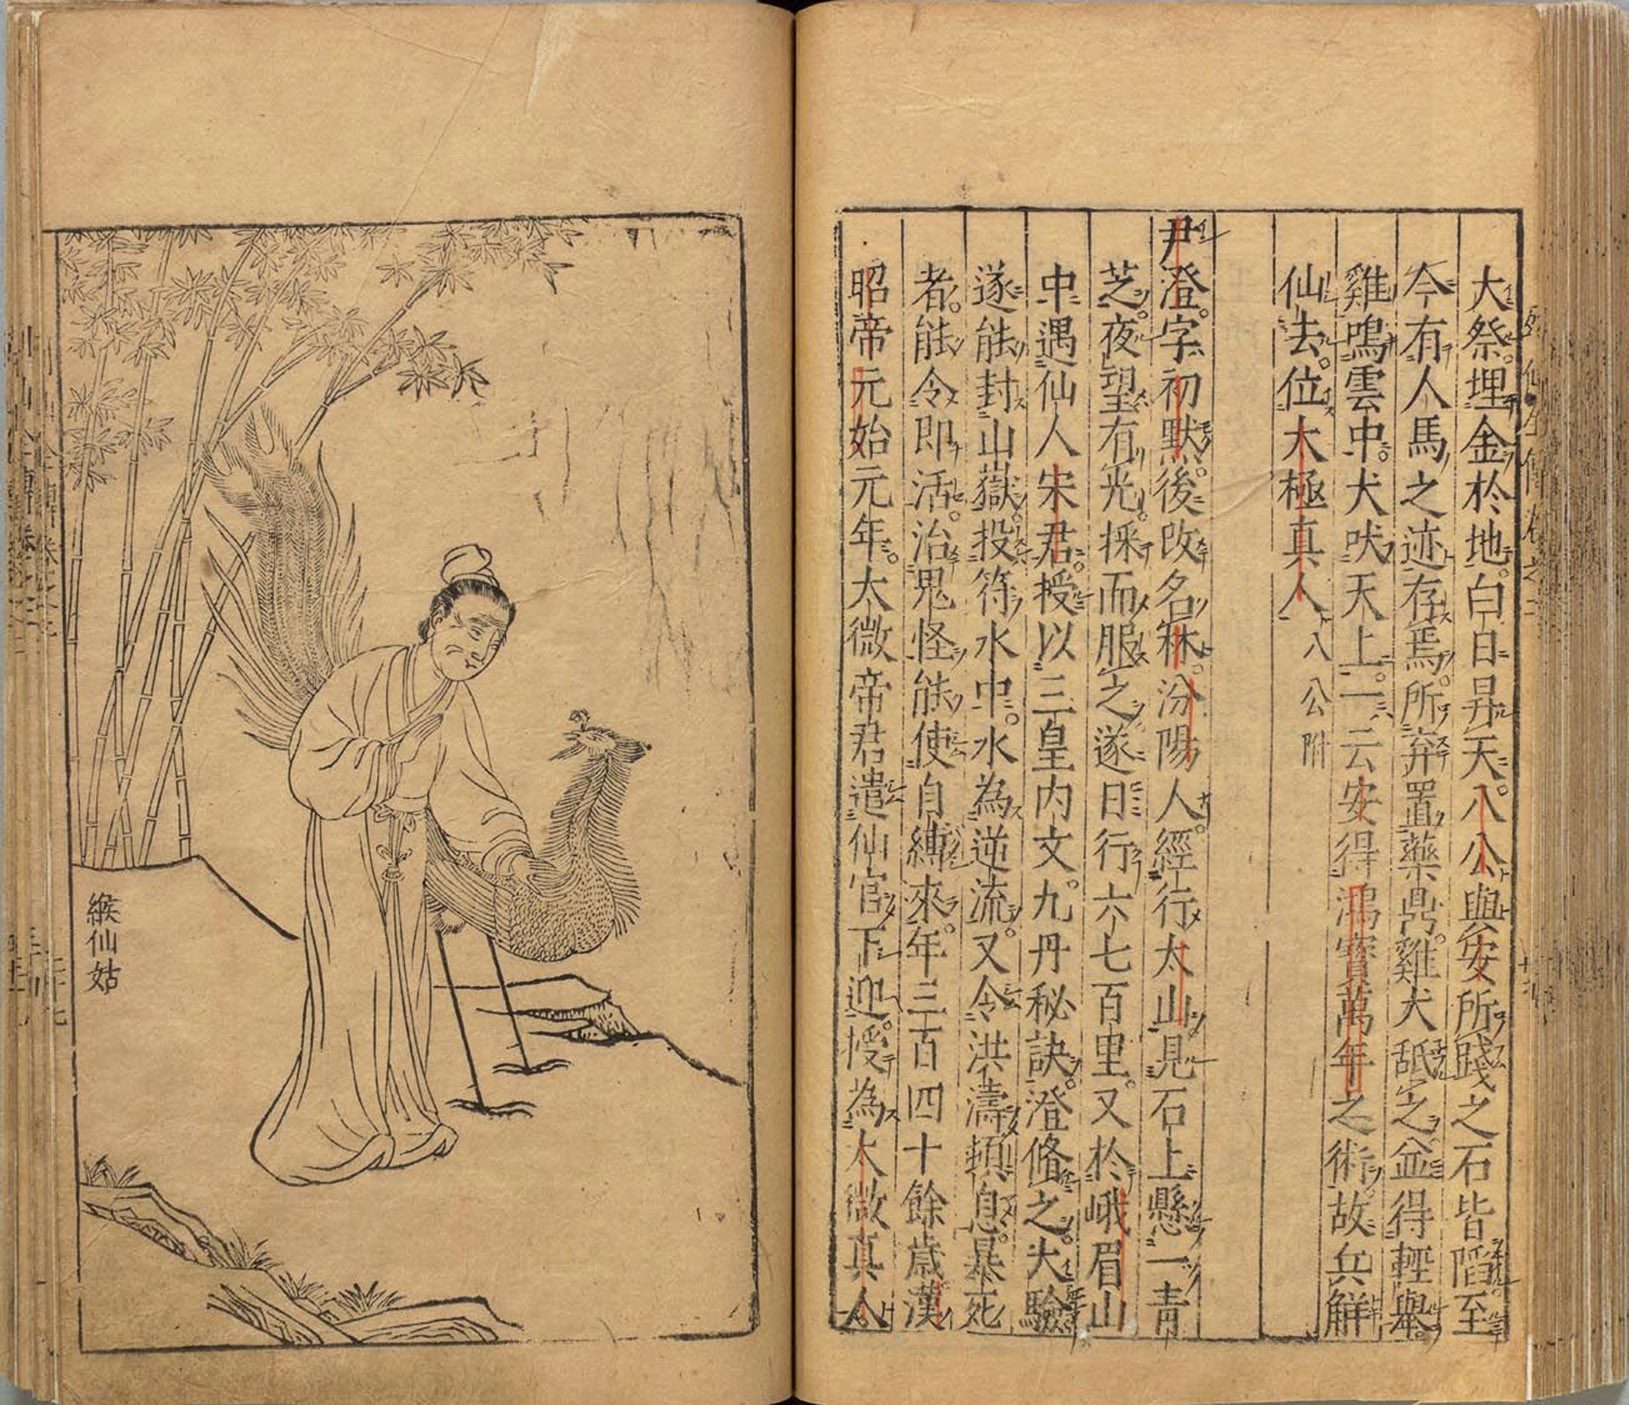 大祭。埋金於地。白日昇天。八公與安所踐之石皆陷至
今有人馬之迹存焉。所弃置藥鼎。雞犬舐之並得輕舉。
雞鳴雲中。犬吠天上。一云安得鴻寶萬年之術故兵解
仙去。位太極真人
八公附
尹澄字初默。後改名林。汾陽人。經行太山。見石上懸一青
芝。夜望有光。採而服之遂日行六七百里。又於峨眉山
中遇仙人宋君。授以三皇内文。九丹秘訣。澄脩之。大驗
遂能封山嶽。投符水中。水為逆流。又令洪濤頓息。暴死
者。能令即活。治鬼怪能使自縛來。年三百四十餘歲。漢
昭帝元始元年。太微帝君遣仙官下迎。授為太微真人
緱仙姑